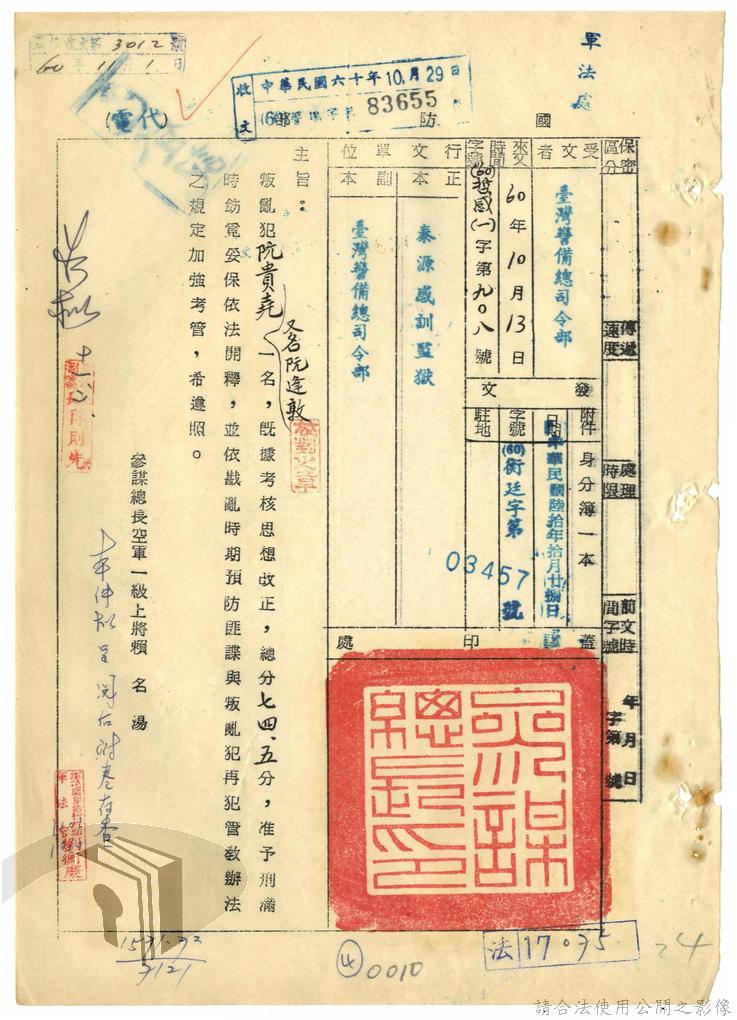 3012
60年11月1日
軍法處
收文
中華民國六十年10月29日
83655
國防部
(代電)
保密區分
傳遞速度
處理時限
前文時間字號
年月日
字第 號
受文者
臺灣警備總司令部
來文時間字號
60年10月13日
(60)哲感(一)字第九〇八號
行文單位
正本
泰源感訓監獄
副本
臺灣警備總司令部
發文
附件
身分簿一本
日期
中華民國陸拾年拾月廿捌日
字號
(60)衡廷字第03457號
駐地
蓋印處
參謀總長印
主旨：叛亂犯阮貴堯（又名阮逢敦）一名，既據考核思想改正，總分七四.五分，准予刑滿
時飭覓妥保依法開釋，並依戡亂時期預防匪諜與叛亂犯再犯管教辦法
之規定加強考管，希遵照。
參謀總長空軍一級上將賴名湯
0010
法17035
24
請合法使用公開之影像